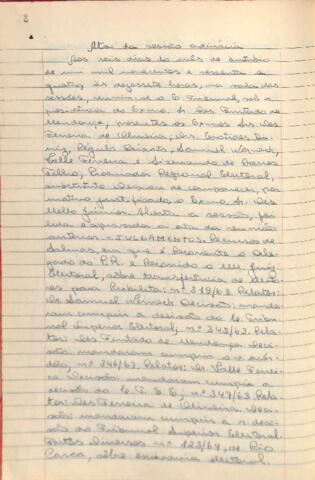 8
Ata da sessão ordinária
Aos seis dias do mês de outubro
de um mil novecentos e sessenta e
quatro, às dezessete horas, na sala das
sessões, reuniu-se o E. Tribunal, sob a
presidência do Exmo. Sr. Des. Furtado de
Mendonça, presentes os Exmos. Srs. Des.
Ferreira de Oliveira, Drs.
Régulo Peixoto, Samuel Werneck,
Valle Ferreira e Sizenando de Barros
Filho, Procurador Regional Eleitoral,
substituto. Deixou de comparecer, por
motivo justificado, o Exmo. Sr. Des.
Mello Júnior. Aberta a sessão, foi
lida e aprovada a ata da reunião
anterior. - JULGAMENTOS. Recursos de
Salinas, em que é Recorrente o Dele-
gado do P.R. e Recorrido o M. Juiz
Eleitoral, sôbre transferência de eleito-
res para Rubelita: nº 319/63. Relator:
Dr. Samuel Werneck. Decisão: manda-
ram cumprir a decisão do E. Tribu-
nal Superior Eleitoral; nº 343/63. Rela-
tor: Des. Furtado de Mendonça. Deci-
são: mandaram cumprir o
nº 346/63. Relator: Dr. Valle Ferrei-
ra. Decisão: mandaram cumprir a
decisão do E. T. S. E.; nº 349/63. Rela-
tor: Des. Ferreira de Oliveira. Deci-
são: mandaram cumprir a deci-
são do Tribunal Superior Eleitoral.
Feitos Diversos nº 123/64, de Rio
Casca, sôbre eleitoral.